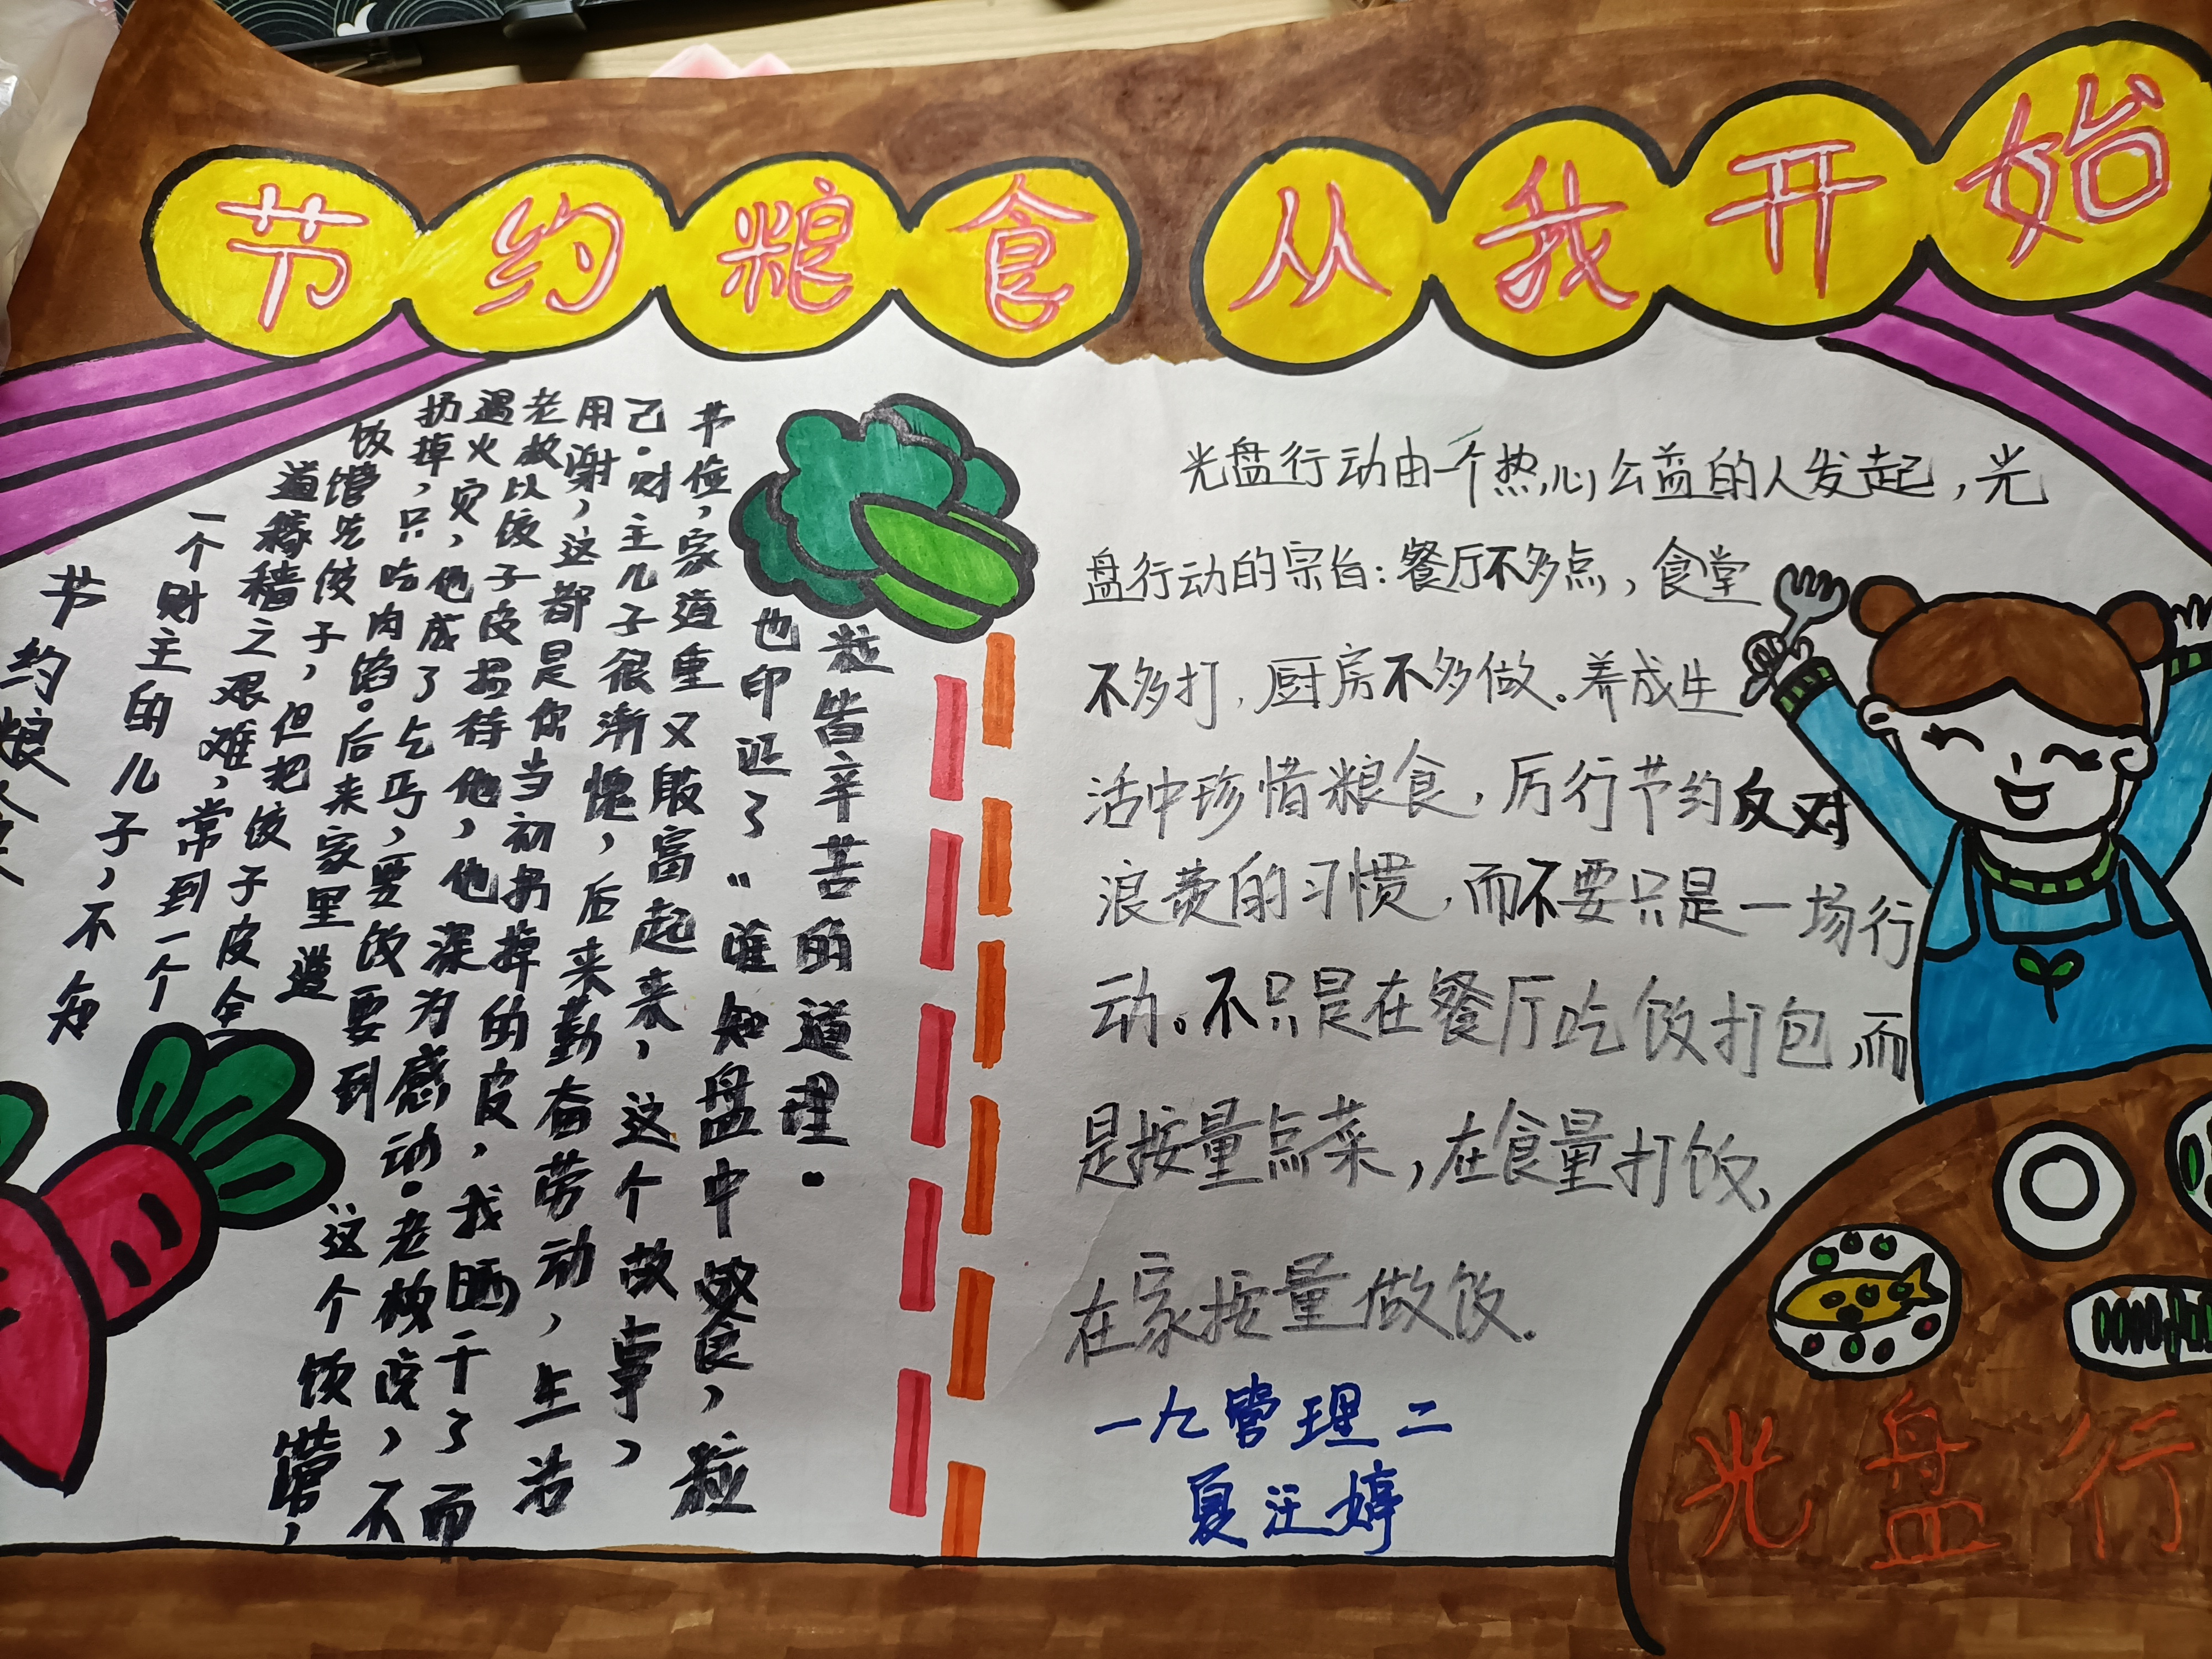 节约粮食 从我开始
节约粮食
一个财主的儿子,不知
道稼穑之艰难,常到一个
饭馆吃饺子,但把饺子皮全
扔掉,只吃肉馅。后来家里遭
遇火灾,他成了乞丐,要饭要到这个饭馆,
老板以饺子皮招待他,他深为感动。老板说,不
用谢,这都是你当初扔掉的皮,我晒干了而
己。财主儿子很渐愧,后来勤奋劳动,生活
节俭,家道重又殷富起来,这个故事,
也印证了“谁知盘中食,粒
粒皆辛苦的道理。
光盘行动由一个热心公益的人发起,光
盘行动的宗旨:餐厅不多点,食堂
不多打,厨房不多做。养成生
活中珍惜粮食,厉行节约反对
浪费的习惯,而不要只是一场行
动。不只是在餐厅吃饭打包,而
是按量点菜,在食量打饭,
在家按量做饭.
一九管理二
夏汪婷
光盘行